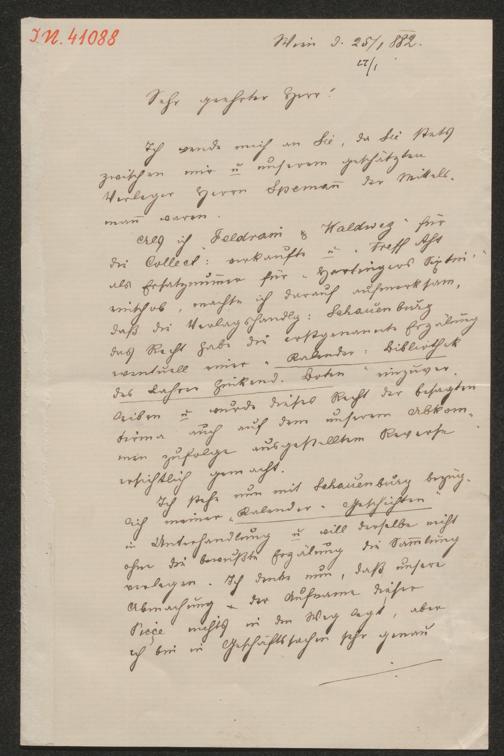 I.N. 41088
Wien d. 25/1 882.
27/1
Sehr geehrter Herr!
Ich wende mich an Sie, da Sie stets
zwischen mir u unserem geschätzten
Verleger Herrn Spemann der Mittels-
mann waren.
Als ich „Feldrain & Waldweg" für
die Collect: verkaufte u. „Treff Aß
als Ersatznummer für „Hartingers
einschob, machte ich darauf aufmerksam,
daß die Verlagshandlg: Schauenburg
das Recht habe die erstgenannte Erzälung
eventuell einer „Kalender: Bibliothek
des Lahrer Hinkend. Boten" einzuver-
leiben u wurde dieses Recht der besagten
Firma auch auf dem unserem Abkom-
men zufolge ausgestellten Reverse
ersichtlich gemacht.
Ich stehe nun mit Schauenburg bezüg-
lich meiner „Kalender-Geschichten"
in Unterhandlung u will derselbe nicht
ohne die bewußte Erzälung die Sammlung
verlegen. Ich denke nun, daß unsere
Abmachung der Aufname dieser
Pieçe nichts in den Weg legt, aber
ich bin in Geschäftssachen sehr genau